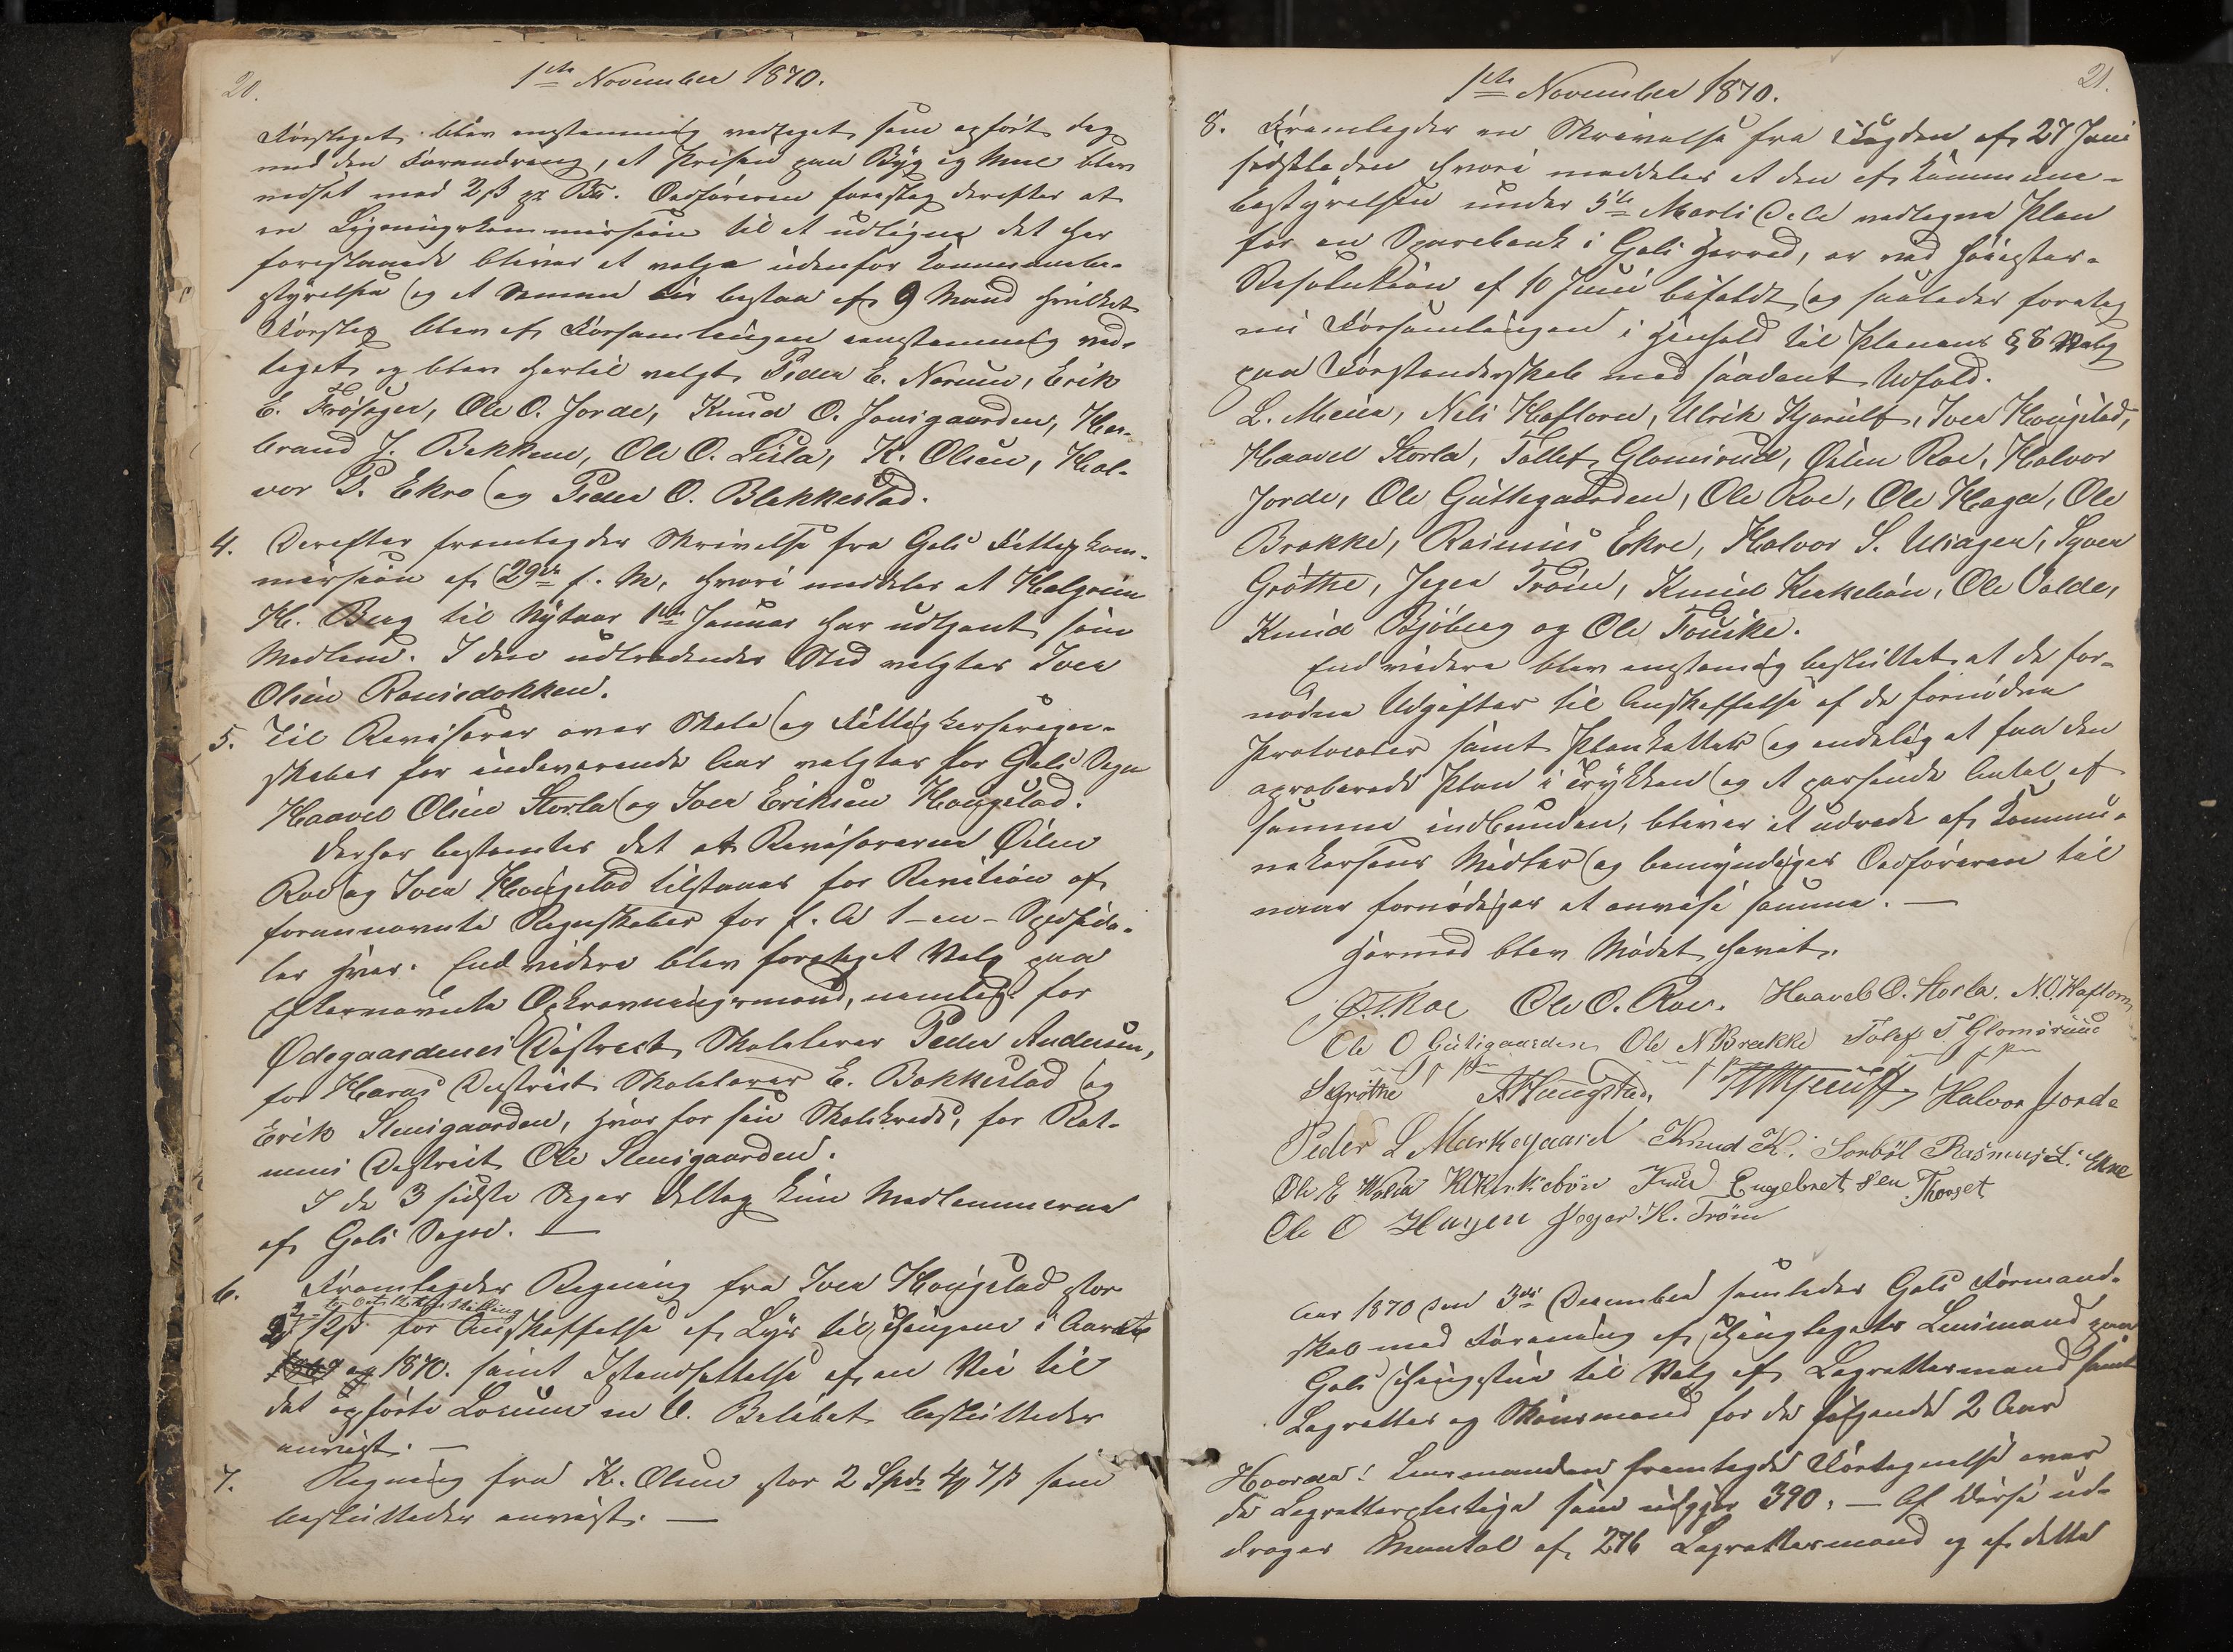 20.
1ste November 1870.
Forslaget blev enstemmig vedtaget som opført dog
med den Forandring, at Prisen paa Byg og Meel blev
nedsat med 2 ß pr B℔. Ordføreren foreslog derefter at
en Ligningskommission til at udligne det her
forestaaende bliver at velge udenfor Kommunebe-
styrelsen og at Samme bør bestaa af 9 Mand hvilket
Forslag blev af Forsamlingen eenstemmig ved-
taget og blev hertil valgt Peder E. Narum, Erik
E. Frøsager, Ole O. Jorde, Knud O. Jonsgaarden, Her-
brand J. Bekkene, Ole O. Lisla, K. Olsen, Hal-
vor P. Ekro og Peder O. Blakkestad.
4. Derefter fremlagdes Skrivelse fra Gols Fattigkom-
mission af 29de f. M. hvori meddeles at Halgrim
H. Berg til Nytaar 1ste Januar har udtjent som
Medlem. I den udtrædendes Sted valgtes Iver
Olsen Ramsedokken.
5. Til Revisorer over Skole og Fattigkasseregn-
skaber for indeværende Aar valgtes for Gols Sogn
Haavel Olsen Storla og Iver Eriksen Haugstad.
Derhos bestemtes det at Revisorerne Øilen
Roe og Iver Haugstad tilstaaes for Revision af
forannævnte Regnskaber for f. A 1 – en – Speciedа-
ler hver. End videre blev foretaget Valg paa
Efternævnte Opkrævningsmænd, nemlig for
Ødegaardenes District Skolelærer Peder Andersen,
for Heraas District Skolelærer E. Bakkestad og
Erik Slensgaarden, hver for sin Skolekreds, for Rot-
nems District Ole Slensgaarden.
I de 3 sidste Sager deltog kun Medlemmerne
af Gols Sogn. —
6. Fremlagdes Regning fra Iver Haugstad stor
12 ß for Anskaffelse af Lys til Thingene i Aaret
1870. samt Istandsettelse af en Vei til
det opførte Locum m V. Beløbet besluttedes
anvist. —
7. Regning fra K. Olsen stor 2 Spd. 4 ỻ 7 ß som
besluttedes anvist. —
21.
1ste November 1870.
8. Fremlagdes en Skrivelse fra Fogden af 27 Juni
sidstleden hvori meddeles at den af Kommune-
bestyrelsen under 5te Marts d. A. vedtagne Plan
for en Sparebank i Gols Herred, er ved Høieste-
Resolution af 10 Juni bifaldt, og saaledes foretog
nu Forsamlingen i Henhold til Planens § 8 Valg
paa Forstanderskab med saadant Udfald.
L. Meier, Nils Haftorn, Ulrik Hjerulf, Iver Haugstad,
Haavel Storla, Tollef Glomsrud, Øilen Roe, Halvor
Jorde, Ole Guttegaarden, Ole Roe, Ole Hagen, Ole
Brakke, Rasmus Ekre, Halvor S. Ulsager, Syver
Grøthe, Jeger Trøim, Knud Kirkebøn, Ole Valde,
Knud Bjøberg og Ole Fouske.
End videre blev enstemig besluttet at de for-
nødne Udgifter til Anskaffelse af de fornødne
Protocoler samt Planhefter og endelig at faa den
aproberede Plan i Trykken og et passende Antal af
samme indbunden, bliver at udrede af Kommu-
nekassens Midler og bemyndiges Ordføreren til
naar fornødiges at anvise samme. —
Hermed blev Mødet hævet.
Ø. T. Roe Ole O. Roe. Haavel O. Storla. N. O. Haftorn
Ole O Gutegaarden Ole N Brakke Tolef T Glomsrud
S Grøthe Haugstad, Halvor Jorde
Peder L Markegaard Knud K. Sorbøl Rasmus L. Ekre
Ole E Kirkebøn Knud Engebretsen Thorset
Ole O Hagen Jeger. K. Trøim
Aar 1870 den 3die December samledes Gols Formand-
skab med Forening af Thinglagets Lensmand paa
Gols Thingstue til Valg af Lagrettesmænd samt
Lagrettes og Skjønsmænd for de følgende 2 Aar
Hvorda! Lensmanden fremlagde Fortegnelse over
de Lagrettespligtige som udgjør 390. — Af disse ud-
drages Mantal af 276 Lagrettesmænd og af dette